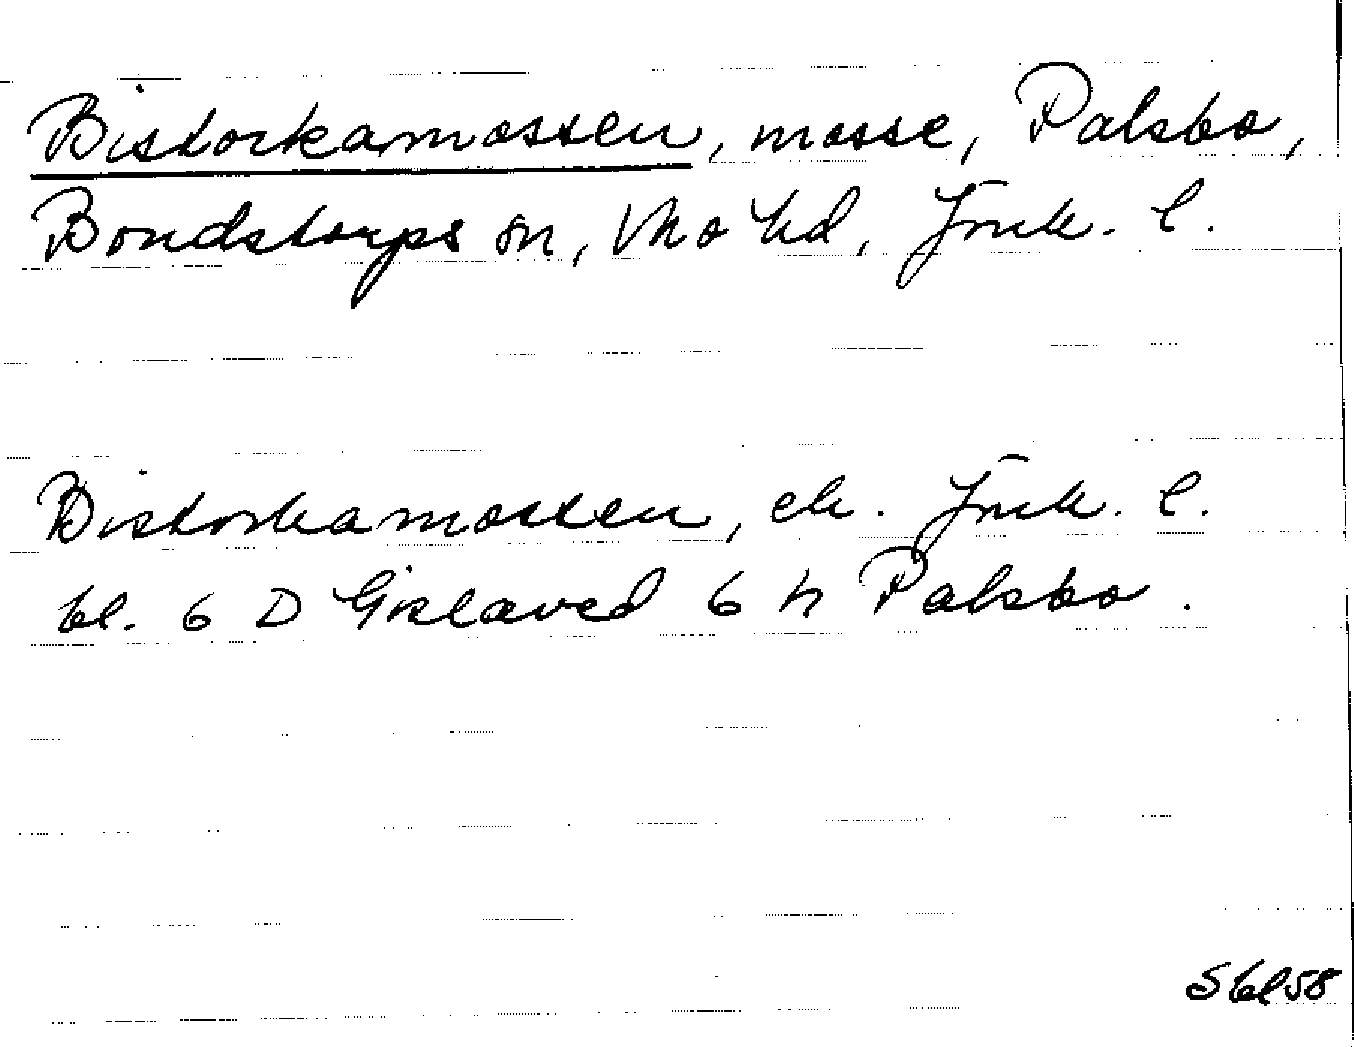 Bistorkamossen, mosse, Palsbo,
Bondstorps sn, Mo hd, Jönk. l.
Bistorkamossen, ek. Jönk. l.
bl. 6 D Gislaved 6 h Palsbo.
S bl 58